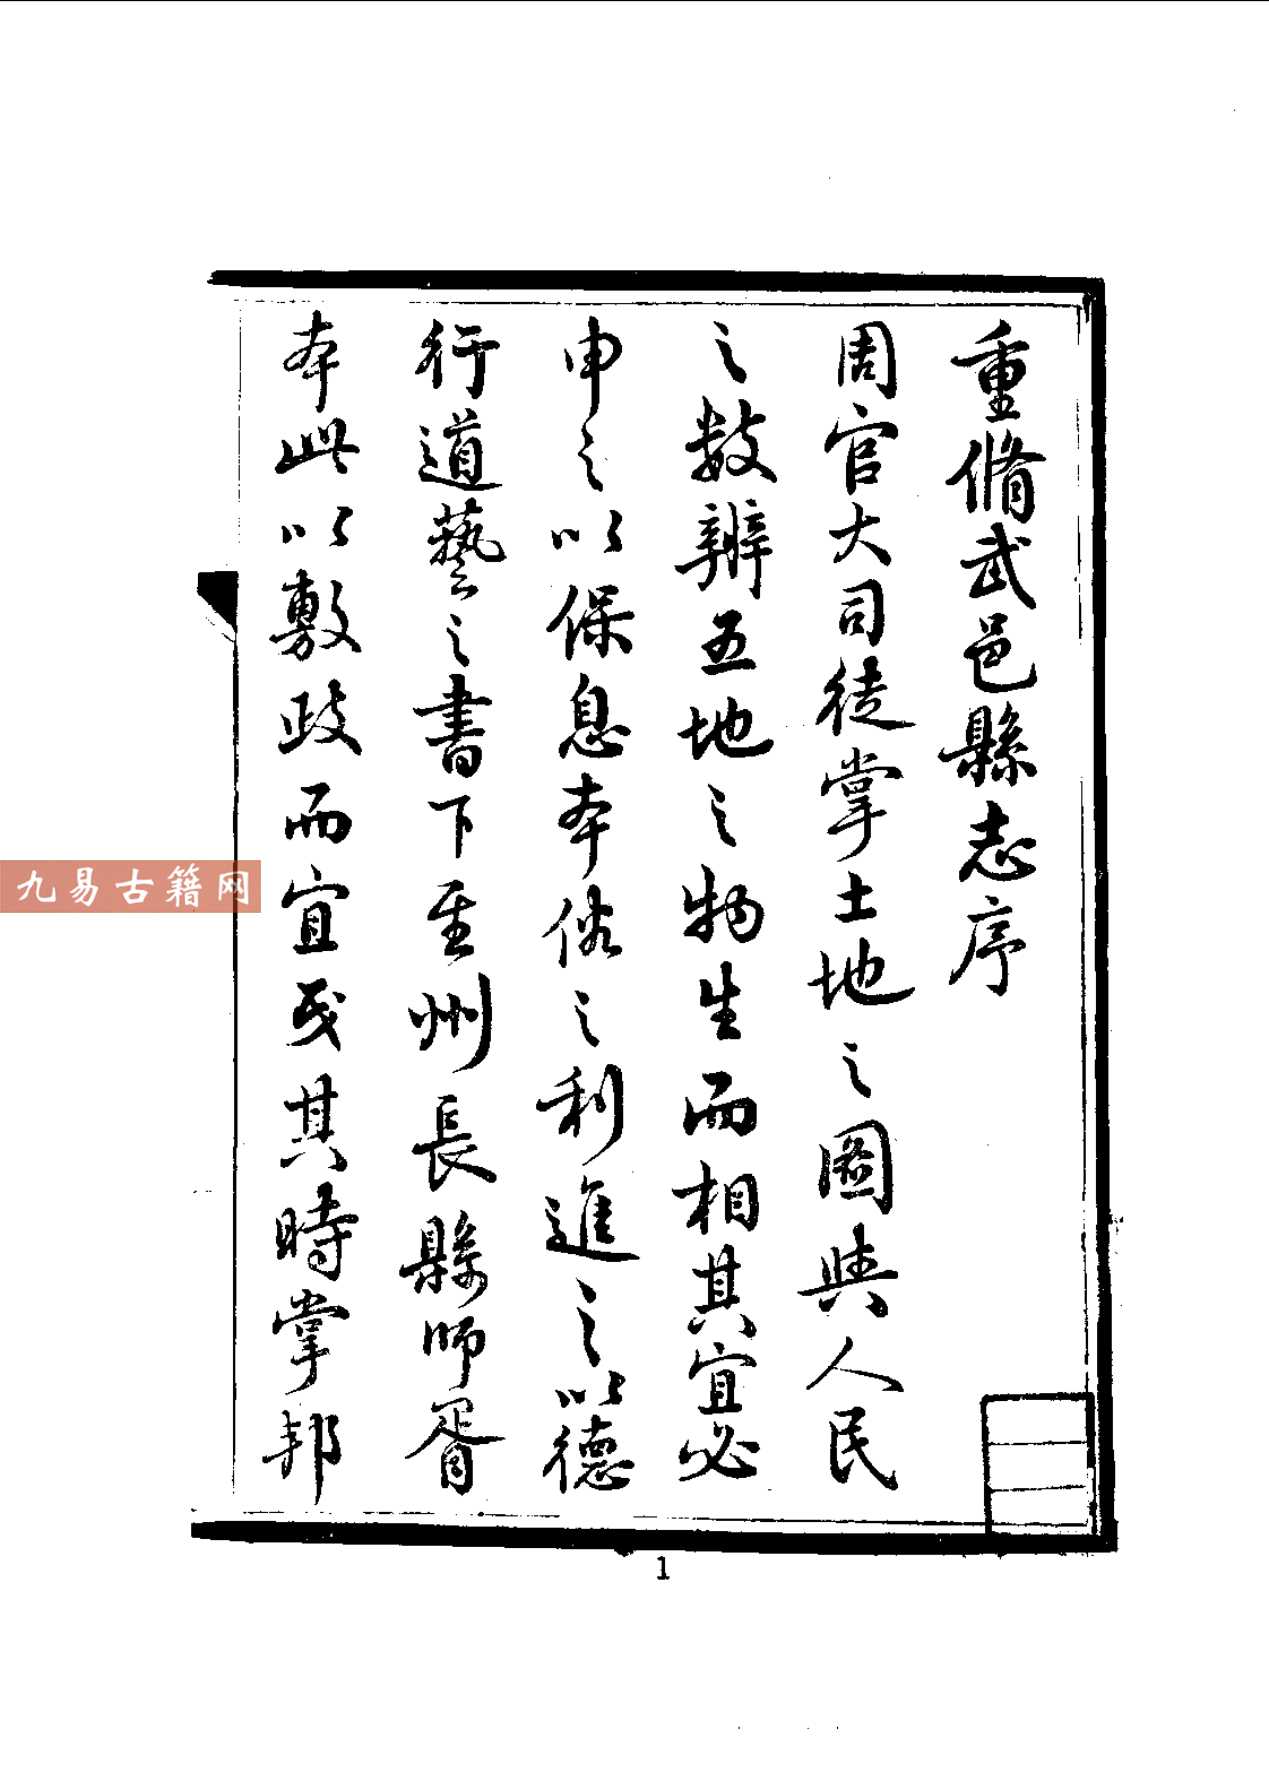 重脩武邑縣志序
周官大司徒掌土地之圖與人民
之數辨五地之物生而相其宜必
申之以保息本俗之利進之以德
行道藝之書下至州長縣師胥
本此以敷政而宜民其時掌邦
1
九易古籍网